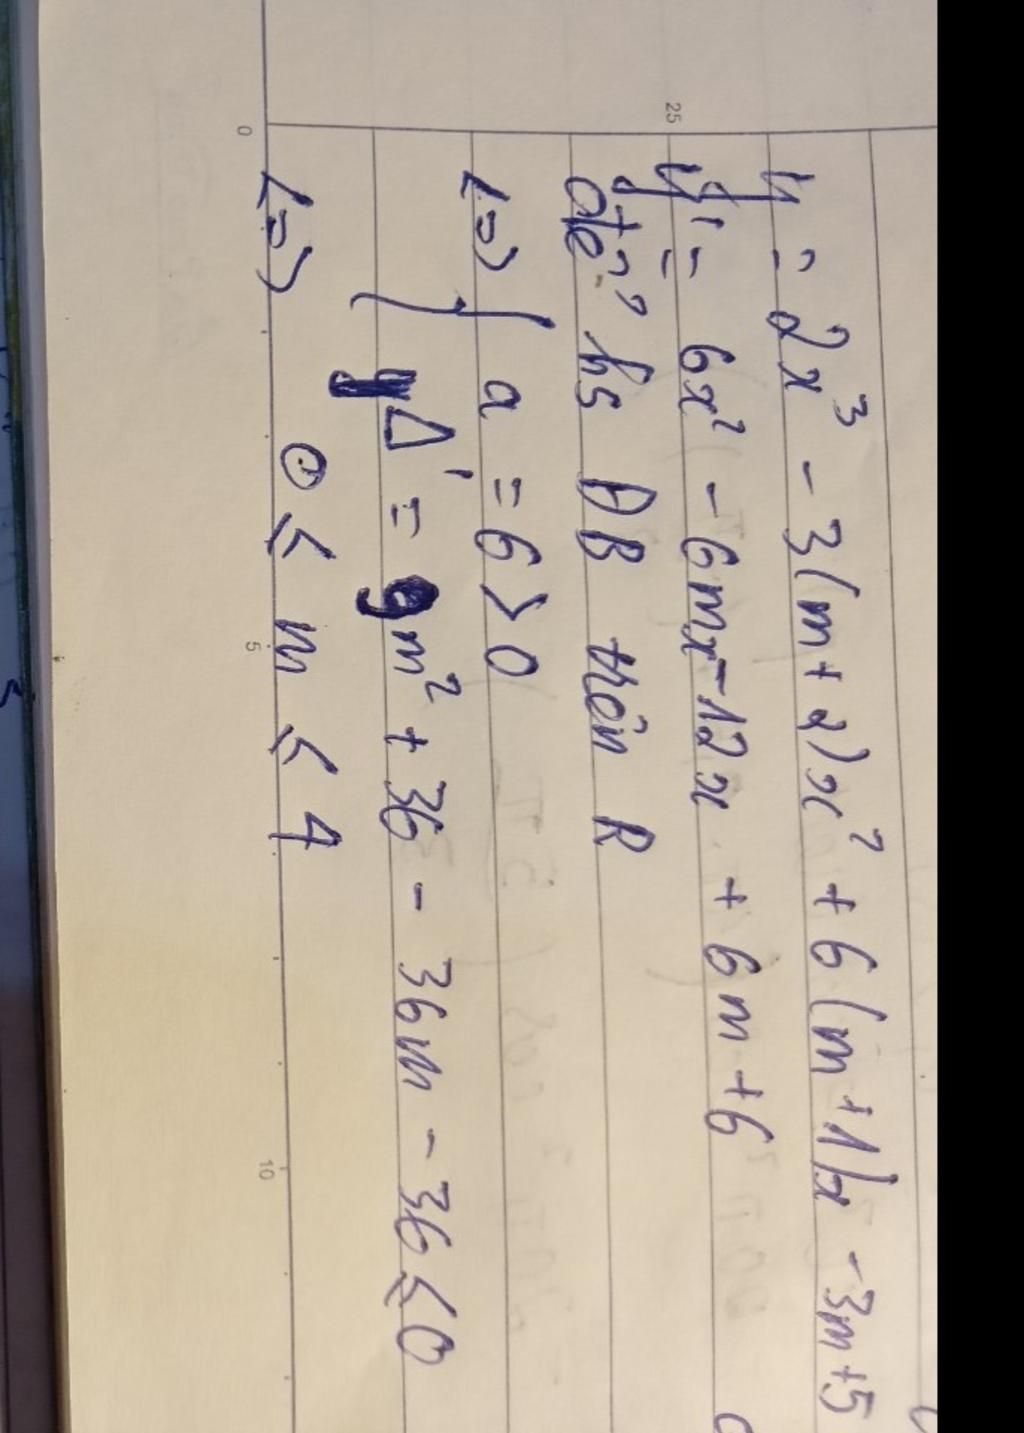 y = 2x³ - 3(m+2)x² + 6(m+1)x - 3m+5
y' = 6x² - 6mx - 12x + 6m + 6
để hs ĐB trên R
<=> { a = 6 > 0
Δ' = 9m² + 36 - 36m - 36 ≤ 0
<=> 0 ≤ m ≤ 4
25
0
5
10